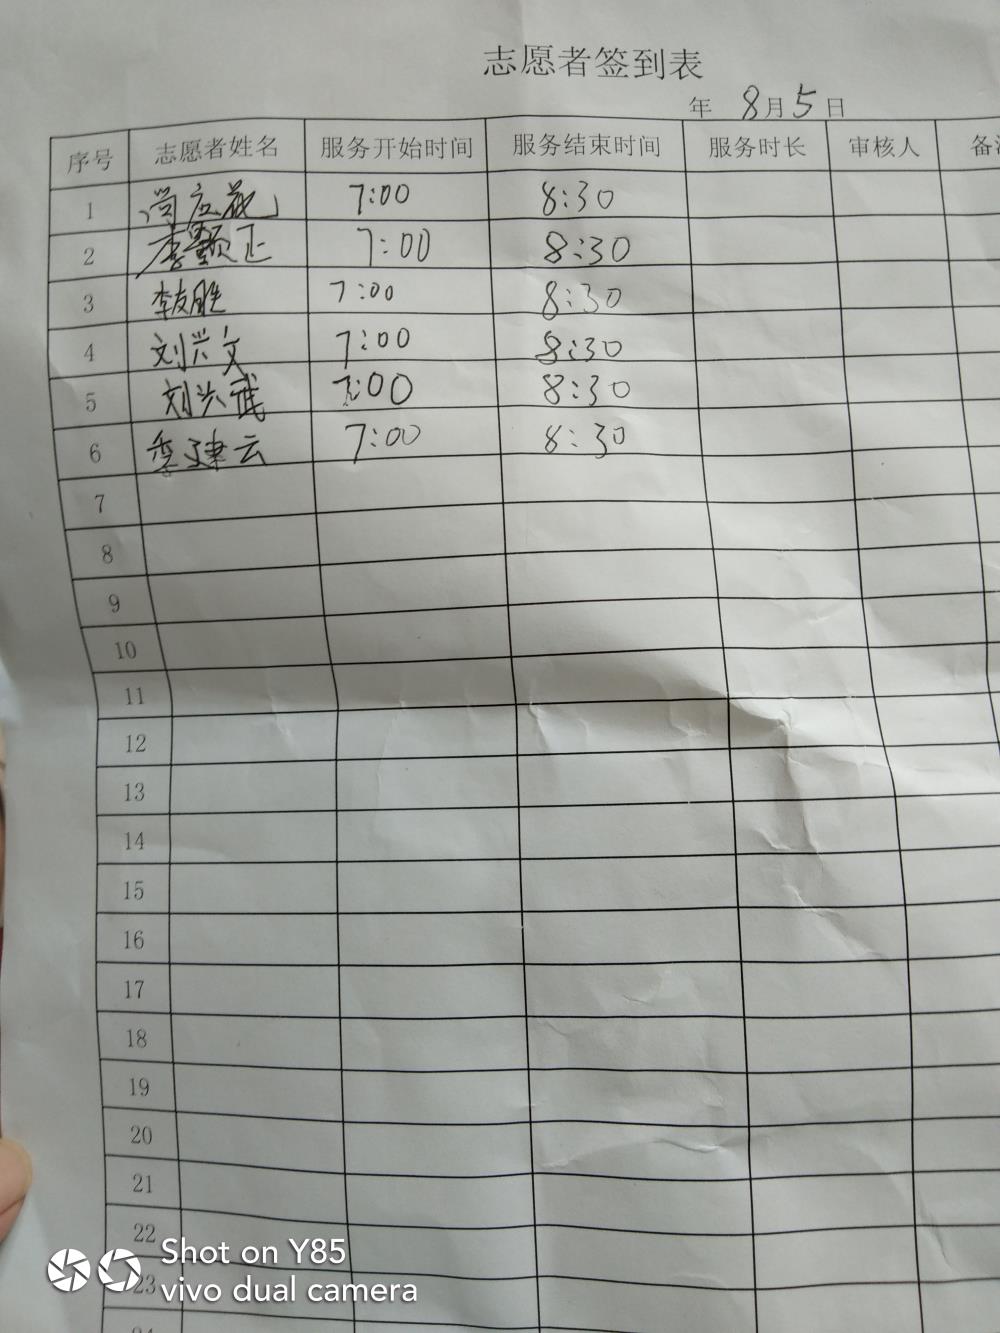 志愿者签到表
年 8月5日
序号 志愿者姓名 服务开始时间 服务结束时间 服务时长 审核人 备
1 尚应 7:00 8:30
2 李颢正 7:00 8:30
3 李友胜 7:00 8:30
4 刘兴文 7:00 8:30
5 刘兴武 7:00 8:30
6 季建云 7:00 8:30
7
8
9
10
11
12
13
14
15
16
17
18
19
20
21
22
23
24
Shot on Y85
vivo dual camera